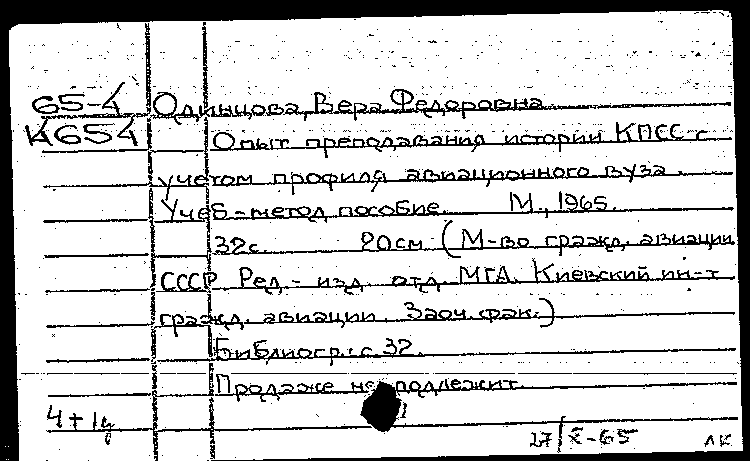 65-4 Одинцова, Вера Федоровна
К654 Опыт преподавания истории КПСС с
учетом профиля авиационного вуза.
Учеб-метод пособие. М., 1965.
32с. 20см (М-во гражд. авиации
СССР. Ред.- изд. отд. МГА. Киевский ин-т
гражд. авиации. Заоч. фак.)
Библиогр.: с. 32.
Продаже не подлежит.
4+1
27/X-65 ЛК